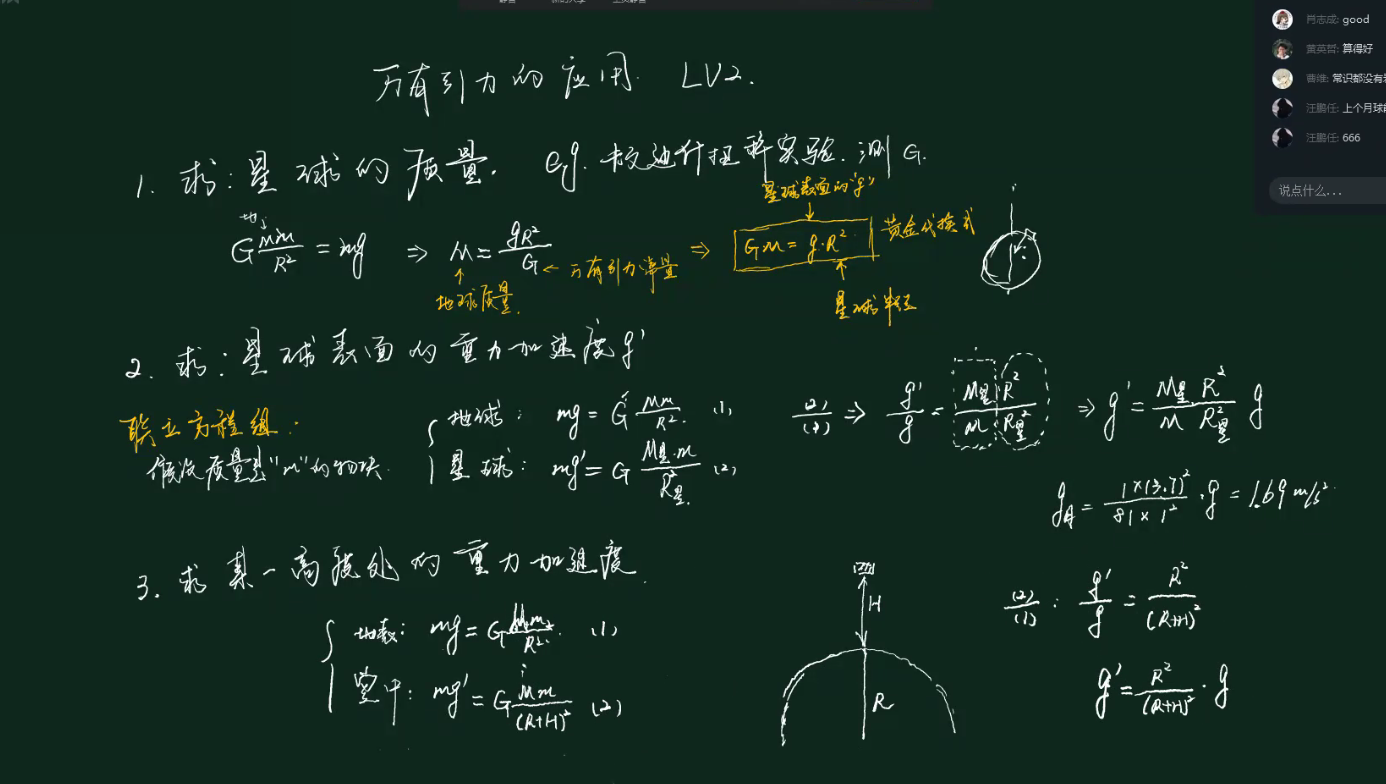 万有引力的应用. LV2.
1. 求: 星球的质量. eg. 卡文迪什扭秤实验. 测G.
星球表面的"g"
地
G Mm/R² = mg ⇒ M = gR²/G ⇒ GM = g·R² 黄金代换式
← 万有引力常量
地球质量.
星球半径
2. 求: 星球表面的重力加速度g'
联立方程组:
假设质量是"m"的物块.
地球: mg = G Mm/R². (1)
星球: mg' = G M星·m/R²星. (2)
(2)/(1) ⇒ g'/g = M星 R²/M R²星 ⇒ g' = M星·R²/M R²星 g
g月 = 1×(3.7)²/81×1² · g = 1.69 m/s²
3. 求某一高度处的重力加速度.
地表: mg = G Mm/R². (1)
空中: mg' = G Mm/(R+H)² (2)
H
R
(2)/(1) : g'/g = R²/(R+H)²
g' = R²/(R+H)² · g
肖志成: good
董英哲: 算得好
曹维: 常识都没有
汪鹏任: 上个月球
汪鹏任: 666
说点什么...